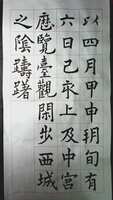 以四月甲申朔旬有
六日己亥上及中宮
歷覽臺觀閑步西城
之陰躊躇